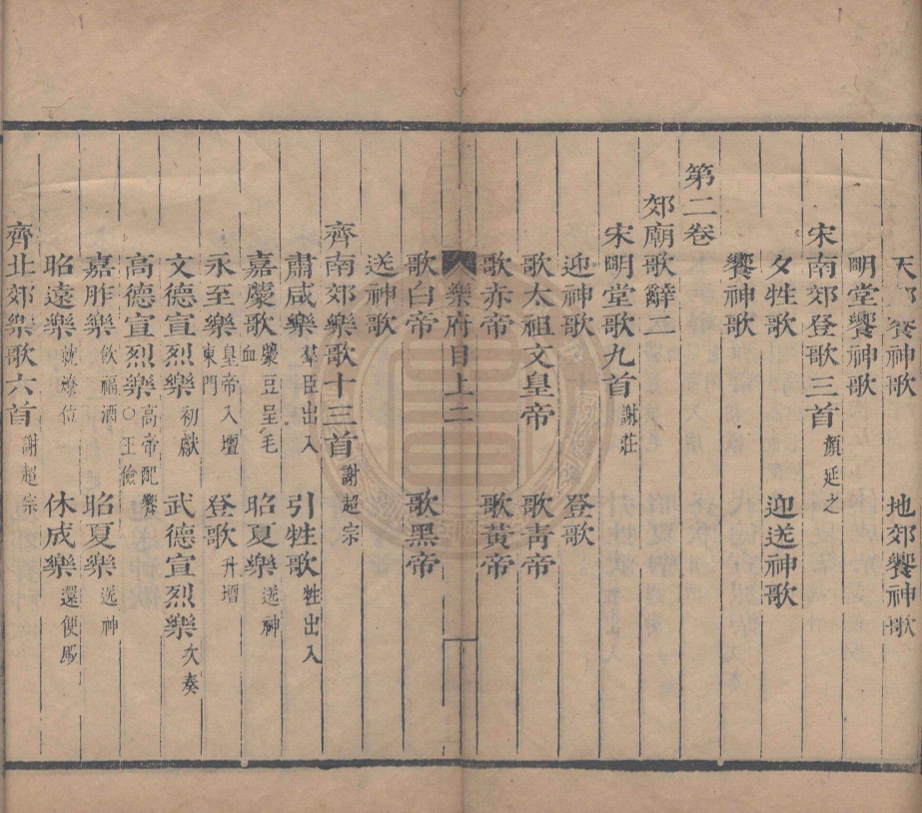 天郊饗神歌 地郊饗神歌
明堂饗神歌
宋南郊登歌三首 顏延之
夕牲歌 迎送神歌
饗神歌
第二卷
郊廟歌辭二
宋明堂歌九首 謝莊
迎神歌 登歌
歌太祖文皇帝 歌青帝
歌赤帝 歌黃帝
樂府目上二
歌白帝 歌黑帝
送神歌
齊南郊樂歌十三首 謝超宗
肅咸樂 羣臣出入 引牲歌 牲出入
嘉薦歌 薦豆呈毛血 昭夏樂 送神
永至樂 皇帝入壇東門 登歌 升壇
文德宣烈樂 初獻 武德宣烈樂 次奏
高德宣烈樂 高帝配饗○王儉
嘉胙樂 飲福酒 昭夏樂 送神
昭遠樂 就燎位 休成樂 還便殿
齊北郊樂歌六首 謝超宗